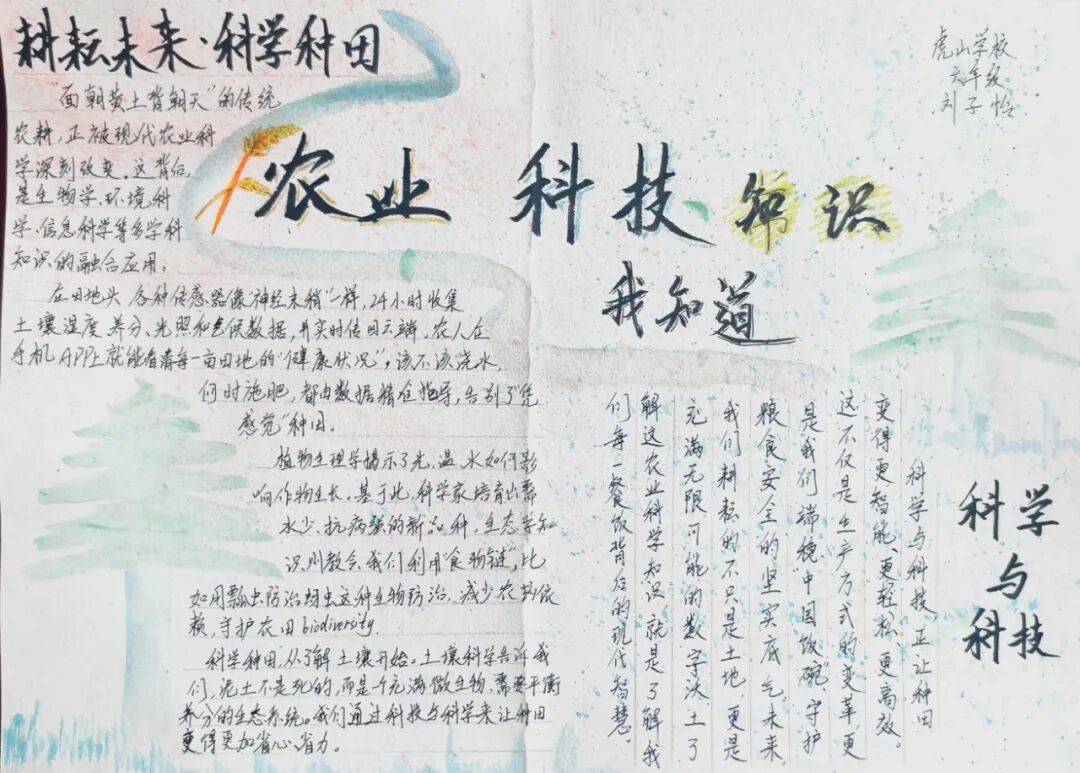 耕耘未来·科学种田
"面朝黄土背朝天"的传统
农耕，正被现代农业科
学深刻改变。这背后
是生物学、环境科
学、信息科学等多学科
知识的融合应用。
在田地头，各种传感器像"神经末梢"一样，24小时收集
土壤湿度、养分、光照和气候数据，并实时传回云端。农人在
手机APP上就能看清每一亩田地的"健康状况"，该不该浇水，
何时施肥，都由数据精准指导，告别了"凭
感觉"种田。
植物生理学揭示了光、温、水如何影
响作物生长。基于此，科学家培育出需
水少、抗病强的新品种，生态学知
识则教会我们利用"食物链"，比
如用瓢虫防治蚜虫这种生物防治，减少农药依
赖，守护农田biodiversity.
科学种田，从了解土壤开始。土壤科学告诉我
们，泥土不是死的，而是个充满微生物、需要平衡
养分的生态系统。我们通过科技与科学来让种田
变得更加省心、省力。
农业科技知识
我知道
虎山学校
六年级
刘子怡
科学与科技
科学与科技，正让种田
变得更智能、更轻松、更高效。
这不仅是生产方式的变革，更
是我们端稳"中国饭碗"，守护
粮食安全的坚实底气。未来，
我们耕耘的不只是土地，更是
充满无限可能的数字沃土。了
解这农业科学知识就是了解我
们每一餐饭背后的现代智慧。